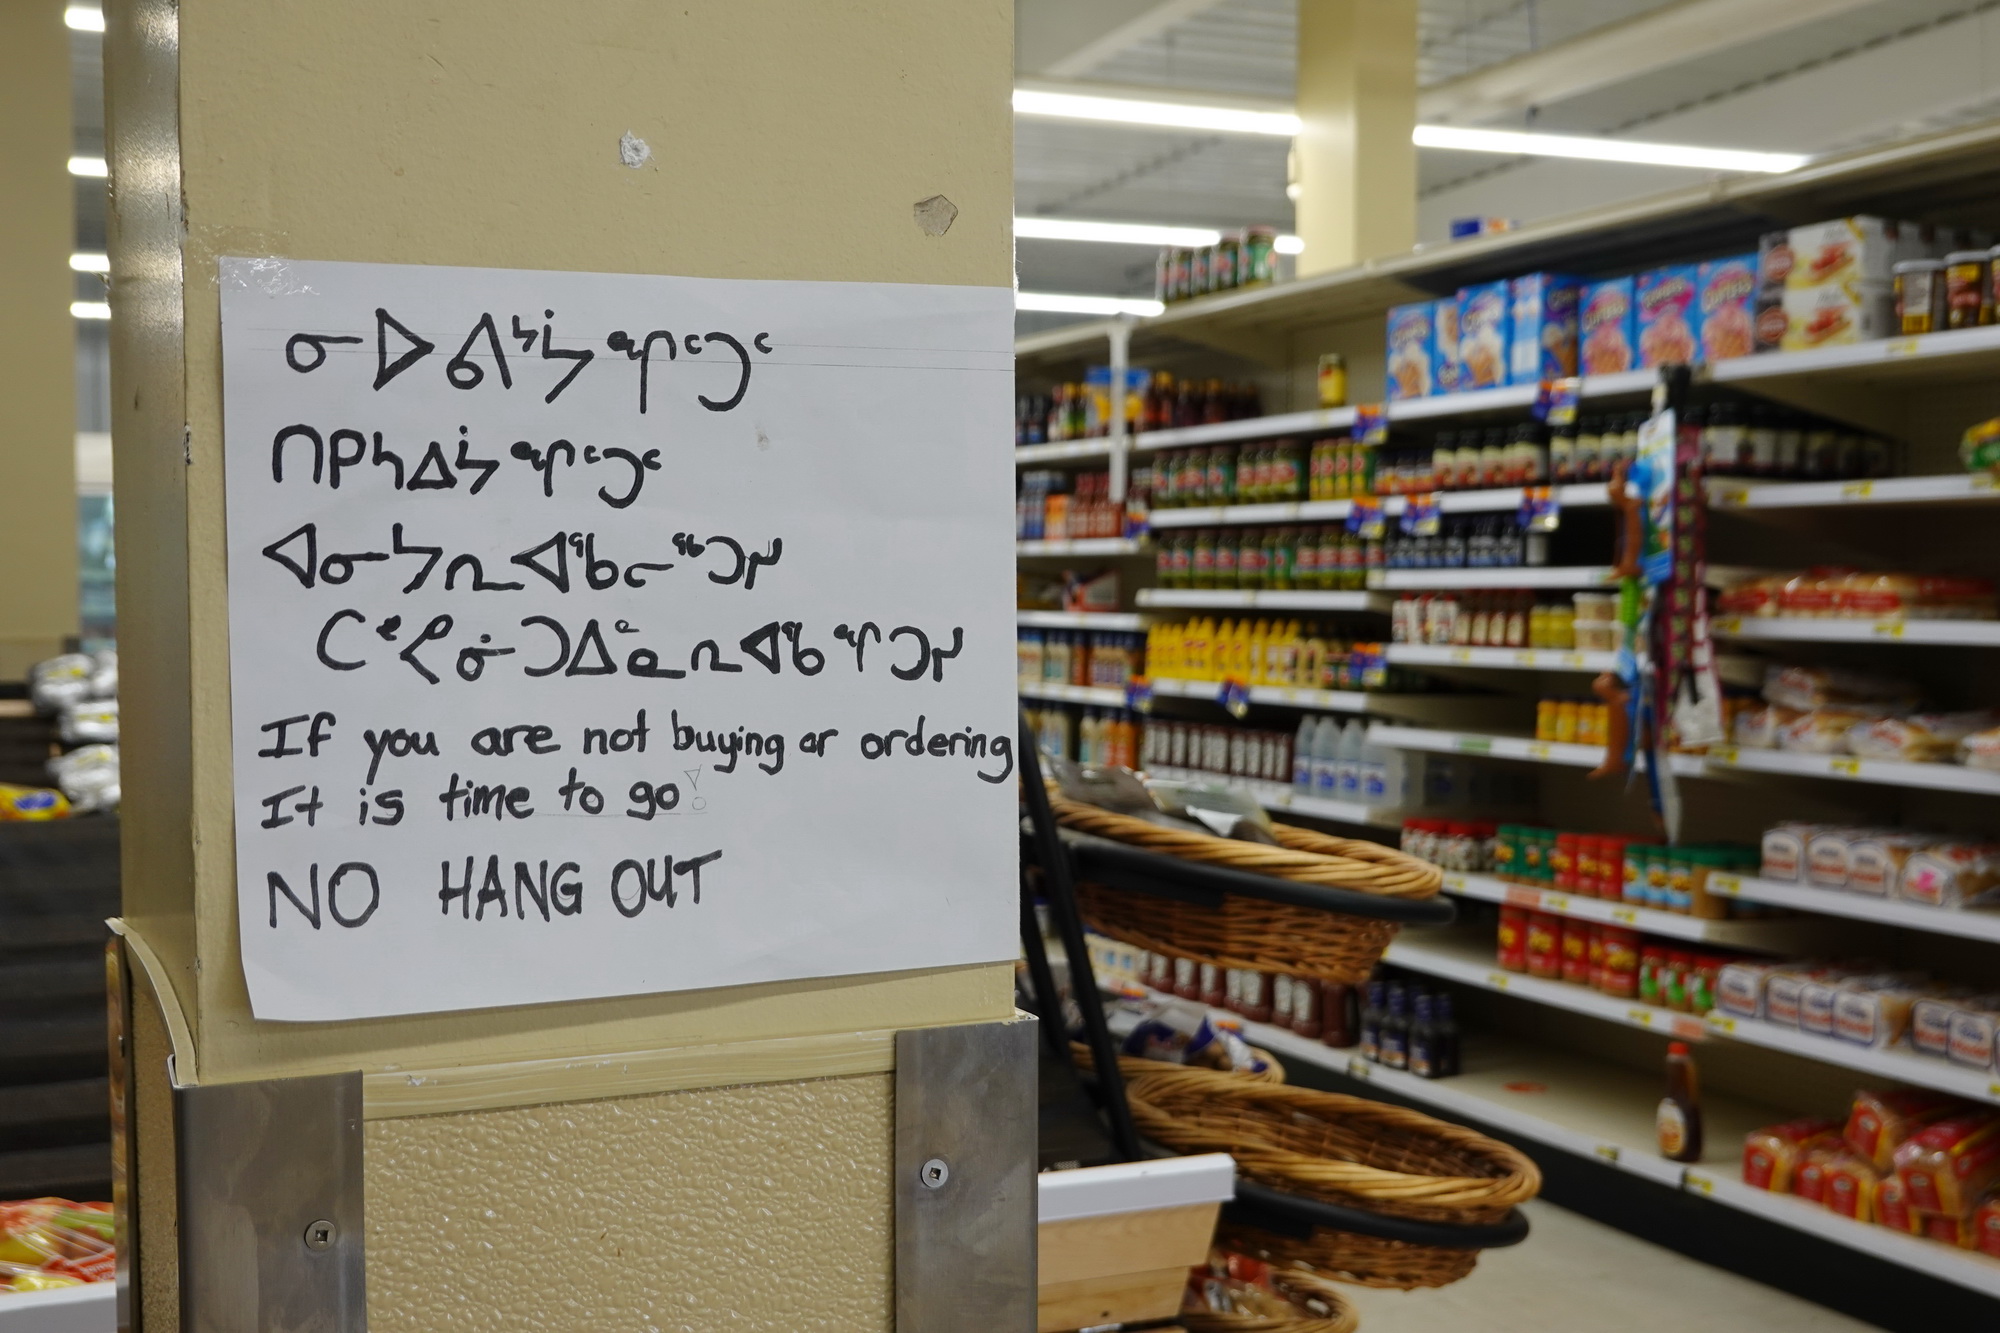 ᓂᐅᕕᔾᔮᖏᑦᑐᑦ
ᑎᑭᓴᐃᔮᖏᑦᑐᑦ
ᐊᓂᔭᕆᐊᖃᓕᖅᑐᓯ
ᑕᕝᕙᓃᑐᐃᓐᓇᕆᐊᖃᖏᑐᓯ
If you are not buying or ordering
It is time to go!
NO HANG OUT